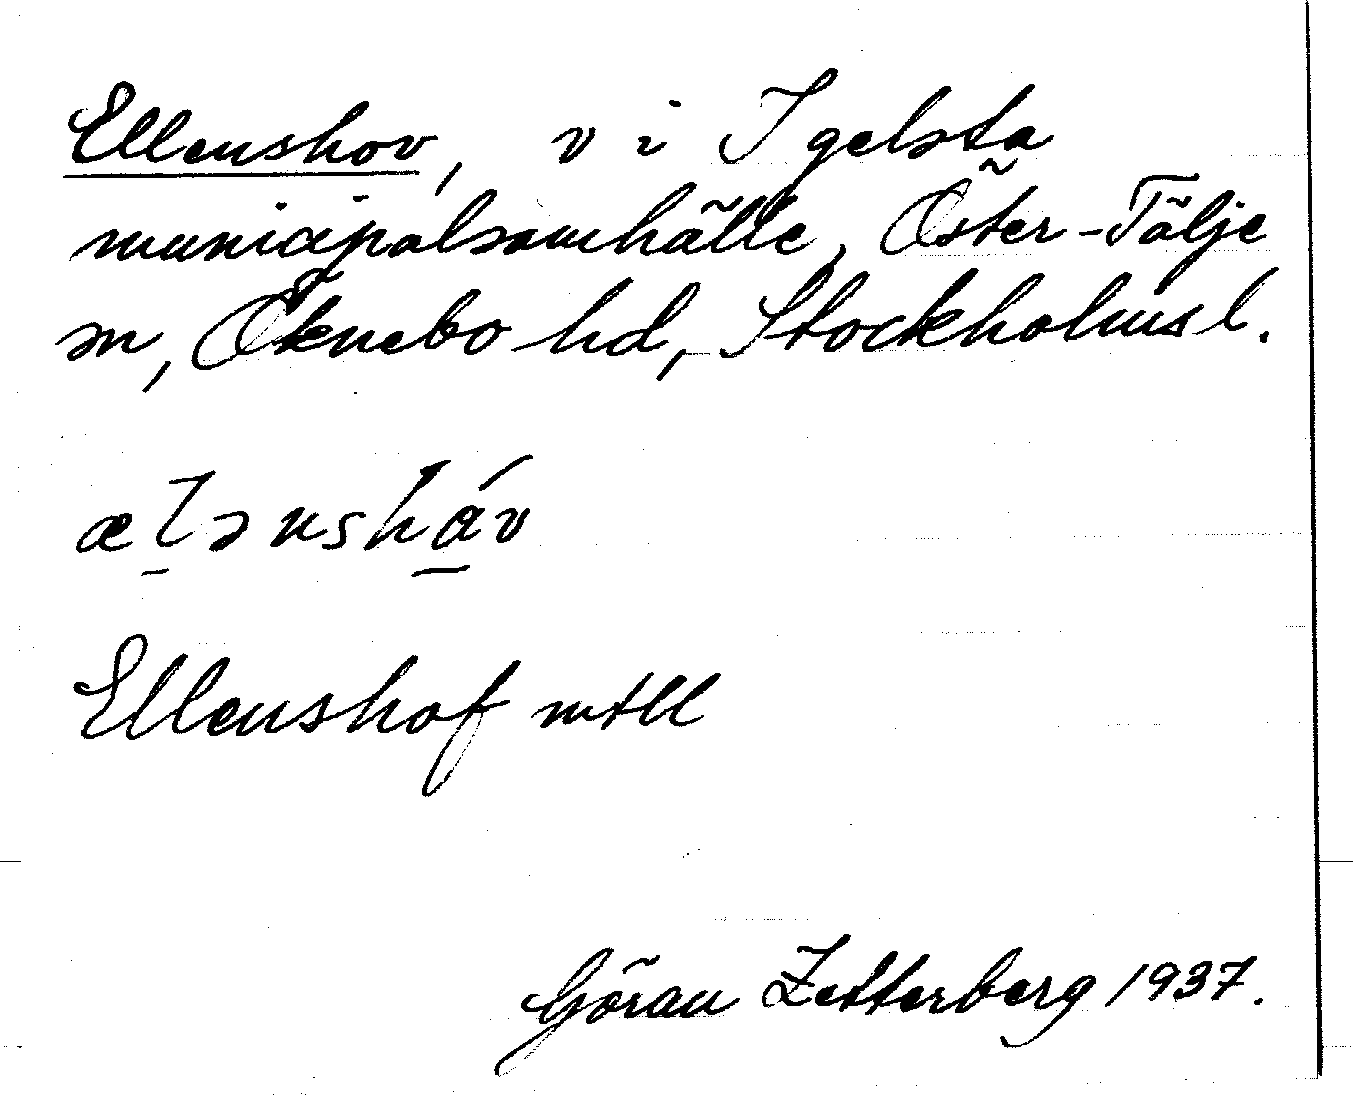 Ellenshov, v i Igelsta
municipalsamhälle, Öster-Tälje
sn, Öknebo hd, Stockholms l.
æl̠ənshá̠v
Ellenshof mtll
Göran Zetterberg 1937.